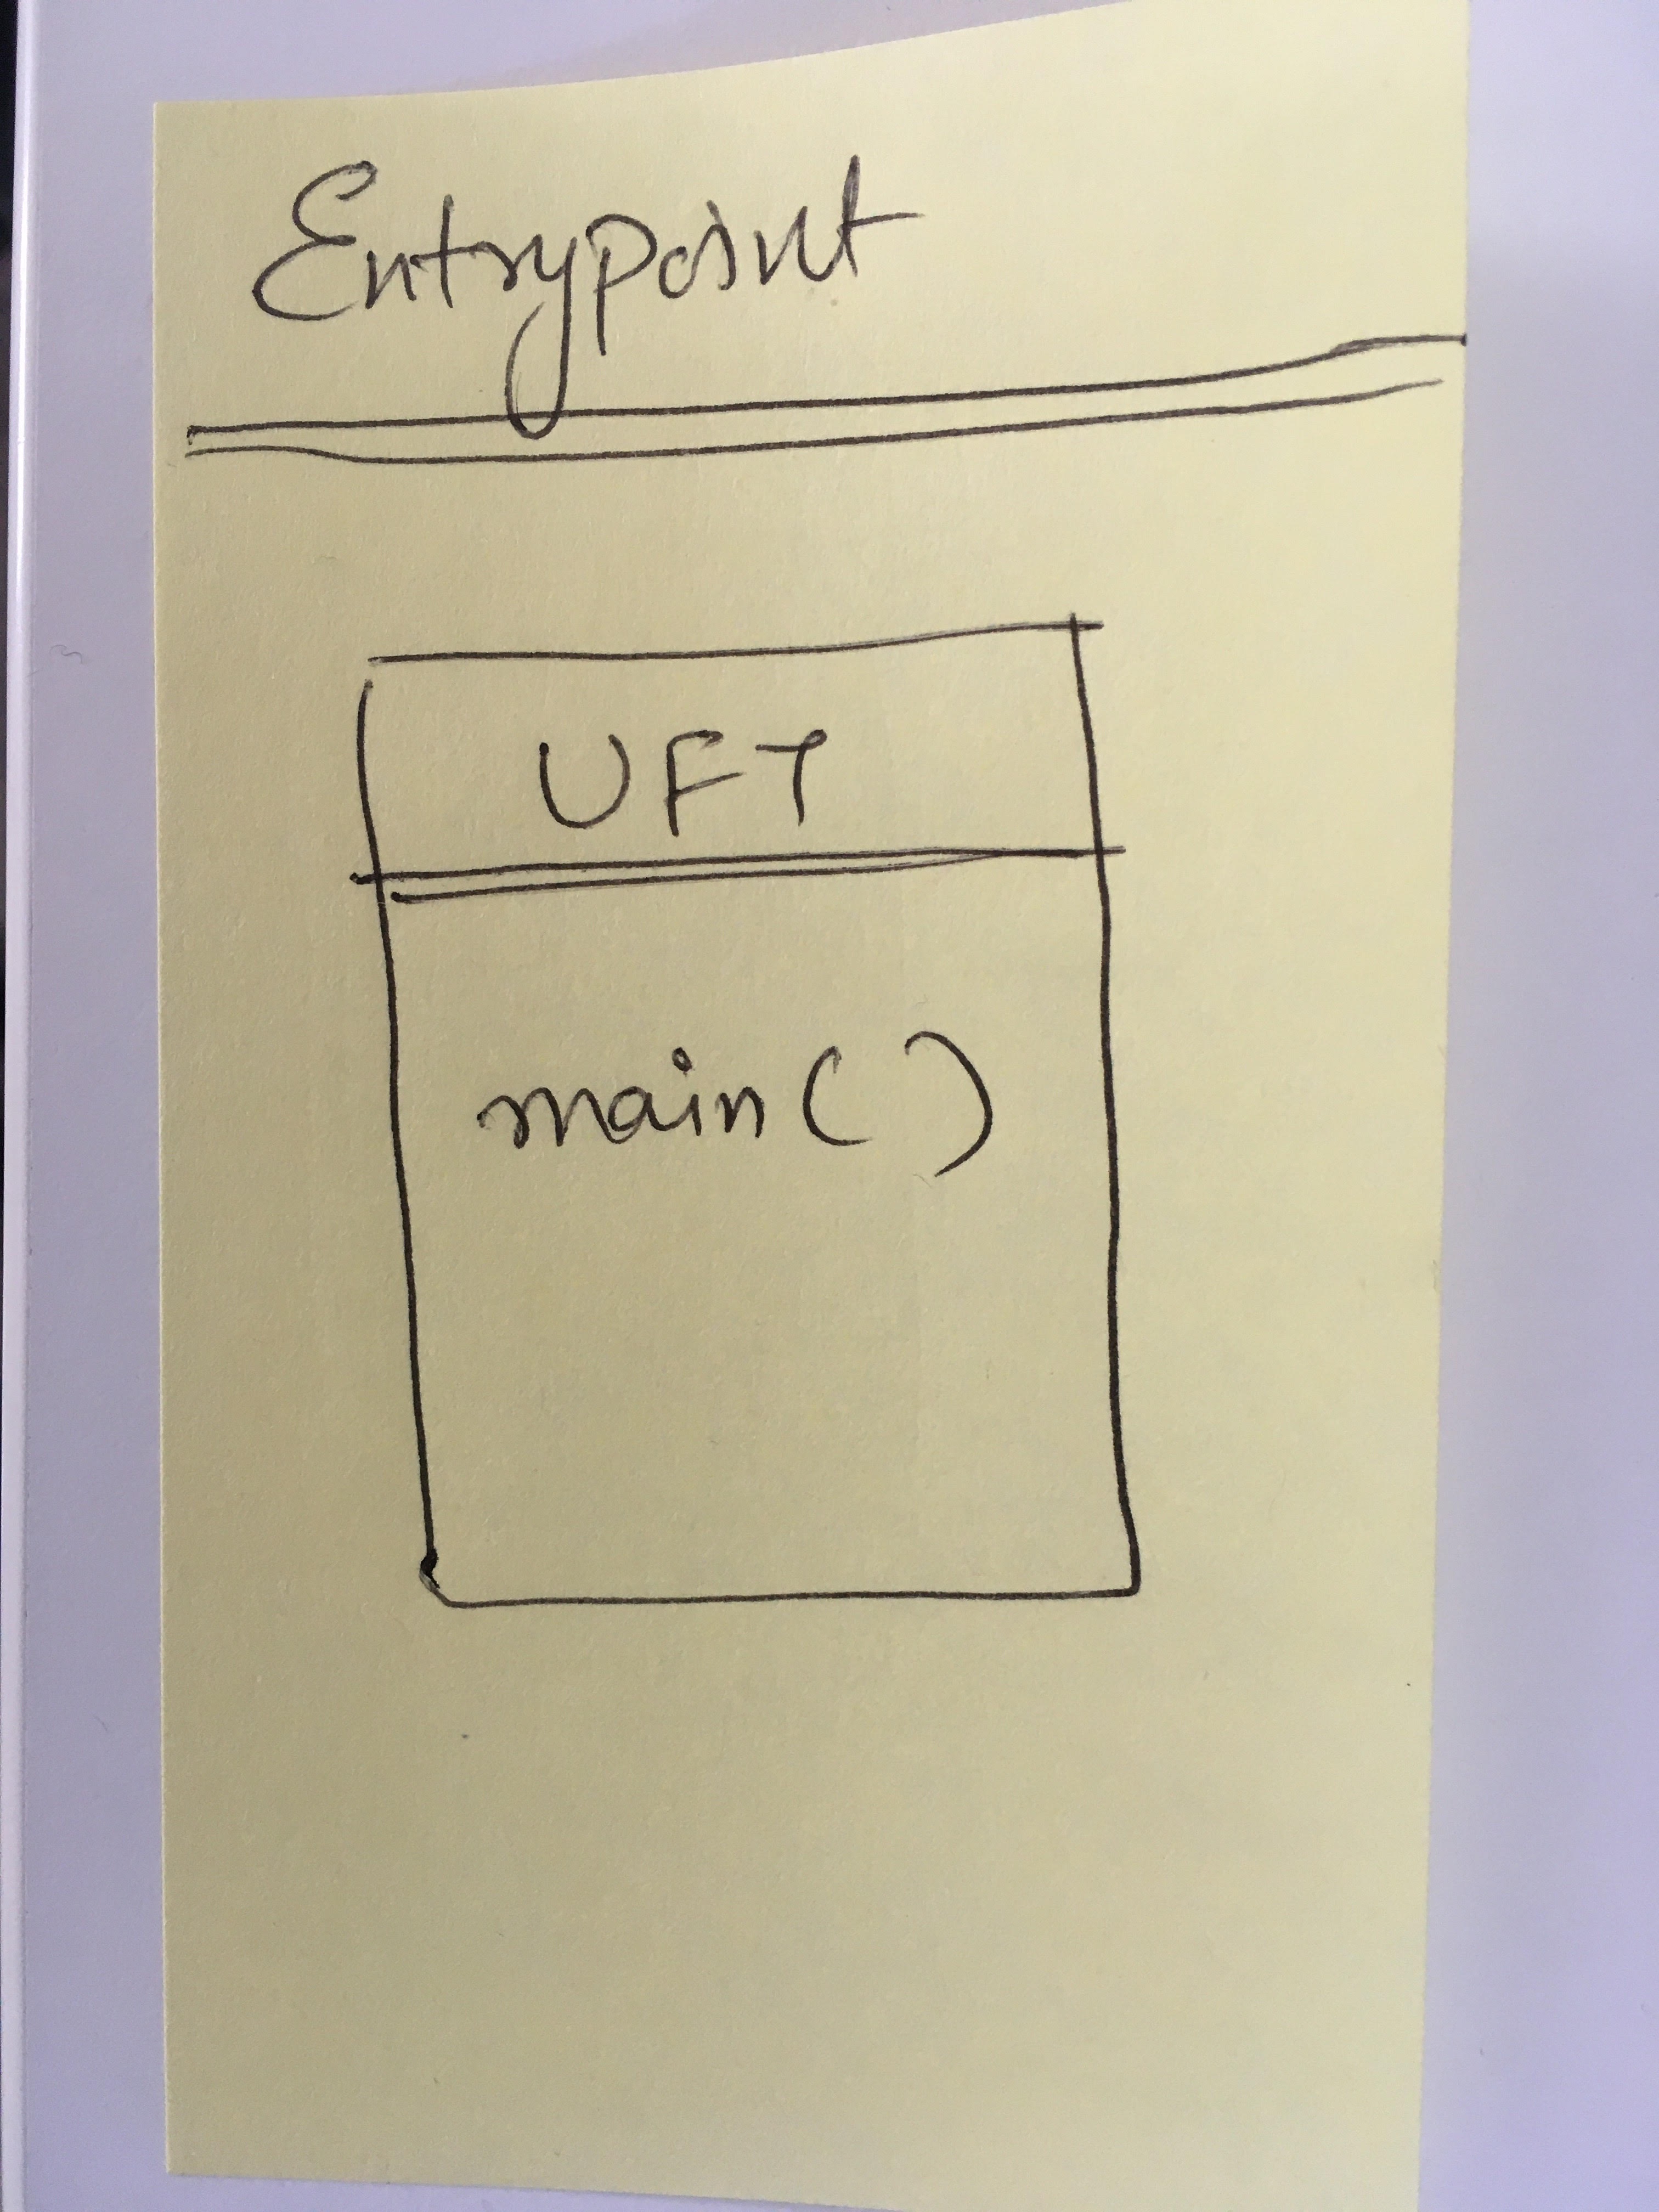 Entrypoint
UFT
main()